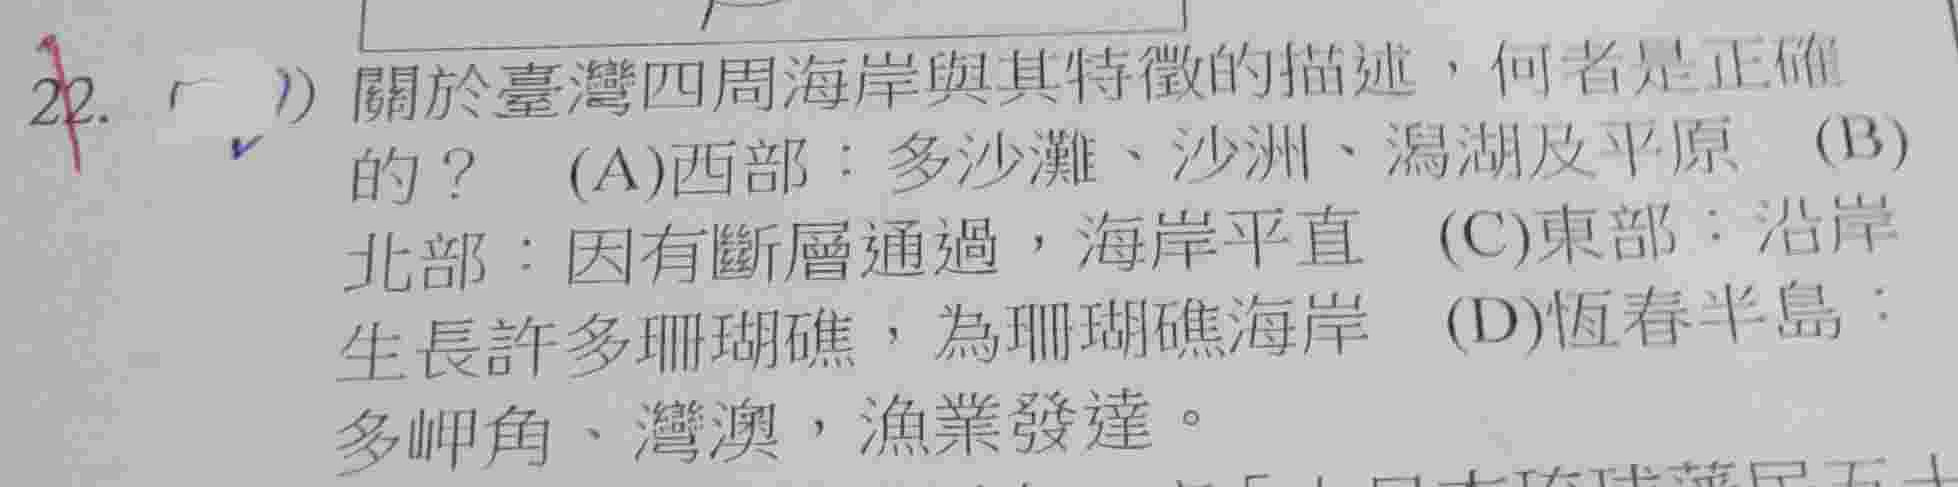 22. ( ) 關於臺灣四周海岸與其特徵的描述，何者是正確
的？ (A)西部：多沙灘、沙洲、潟湖及平原 (B)
北部：因有斷層通過，海岸平直 (C)東部：沿岸
生長許多珊瑚礁，為珊瑚礁海岸 (D)恆春半島：
多岬角、灣澳，漁業發達。